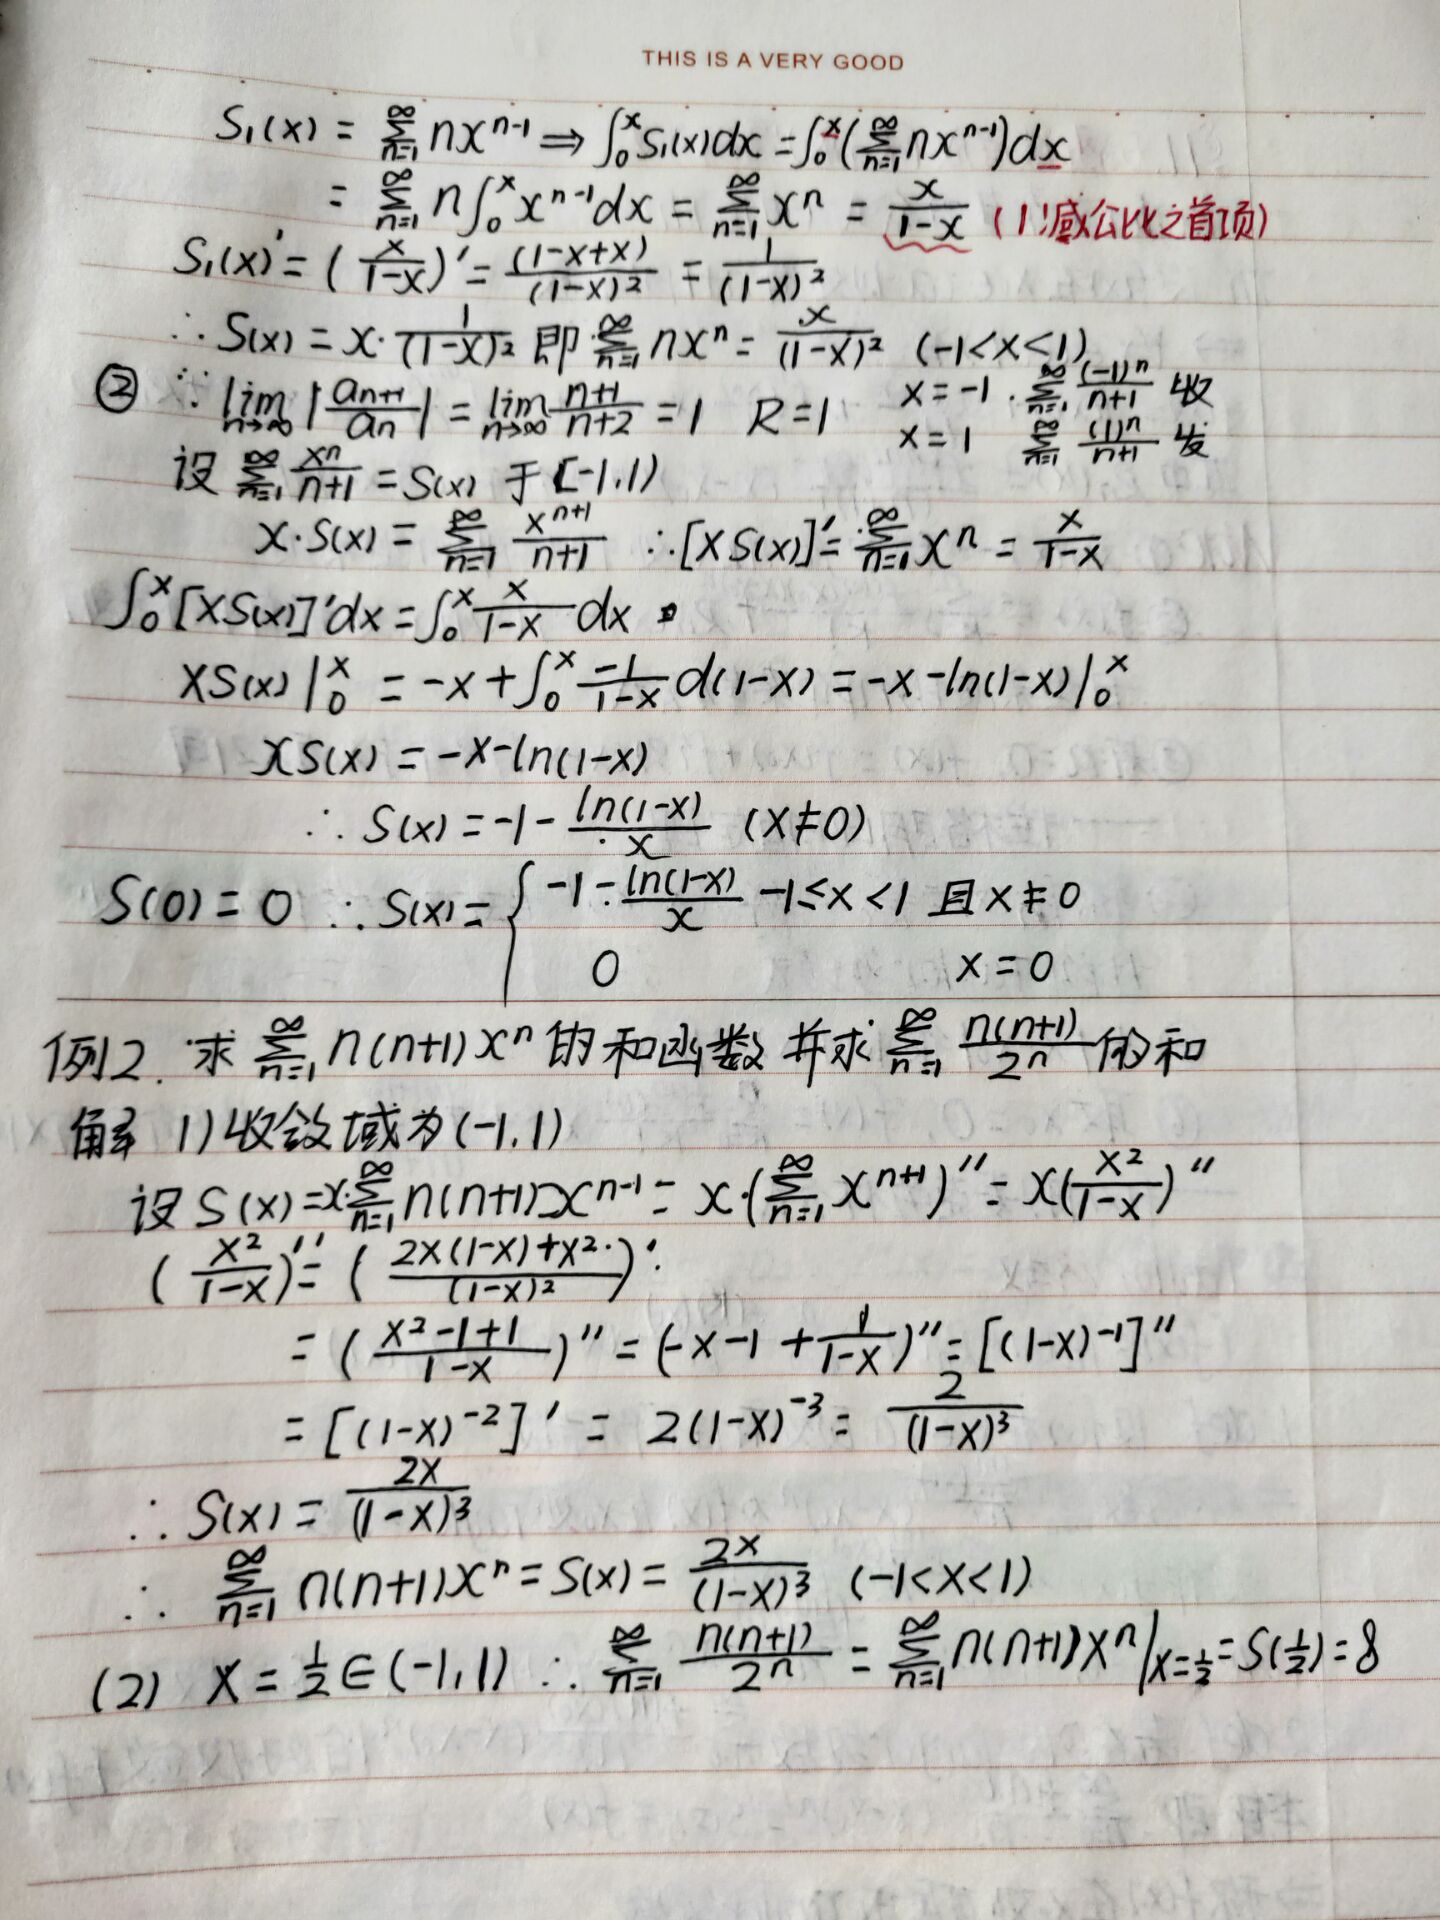 THIS IS A VERY GOOD
S₁(x) = ∑_{n=1}^{∞} nx^{n-1} ⇒ ∫₀ˣ S₁(x)dx = ∫₀ˣ (∑_{n=1}^{∞} nx^{n-1})dx
= ∑_{n=1}^{∞} n∫₀ˣ x^{n-1}dx = ∑_{n=1}^{∞} xⁿ = x/(1-x) (1减公比之首项)
S₁(x)' = (x/(1-x))' = (1-x+x)/(1-x)² = 1/(1-x)²
∴ S(x) = x·1/(1-x)² 即 ∑_{n=1}^{∞} nxⁿ = x/(1-x)² (-1<x<1)
② ∵ lim_{n→∞} |a_{n+1}/a_n| = lim_{n→∞} (n+1)/(n+2) = 1 R=1 x=-1 ∑_{n=1}^{∞} (-1)ⁿ/(n+1) 收
x=1 ∑_{n=1}^{∞} (1)ⁿ/(n+1) 发
设 ∑_{n=1}^{∞} xⁿ/(n+1) = S(x) 于 [-1,1)
x·S(x) = ∑_{n=1}^{∞} x^{n+1}/(n+1) ∴ [xS(x)]' = ∑_{n=1}^{∞} xⁿ = x/(1-x)
∫₀ˣ [xS(x)]'dx = ∫₀ˣ x/(1-x) dx
xS(x)|₀ˣ = -x + ∫₀ˣ -1/(1-x) d(1-x) = -x - ln(1-x)|₀ˣ
xS(x) = -x-ln(1-x)
∴ S(x) = -1 - ln(1-x)/x (x≠0)
S(0) = 0 ∴ S(x) = { -1 - ln(1-x)/x -1≤x<1 且 x≠0
0 x=0
例2. 求 ∑_{n=1}^{∞} n(n+1)xⁿ 的和函数并求 ∑_{n=1}^{∞} n(n+1)/2ⁿ 的和
解 1) 收敛域为 (-1,1)
设 S(x) = x·∑_{n=1}^{∞} n(n+1)x^{n-1} = x·(∑_{n=1}^{∞} x^{n+1})'' = x(x²/(1-x))''
(x²/(1-x))'' = ((2x(1-x)+x²)/(1-x)²)'
= ((x²-1+1)/(1-x))'' = (-x-1+1/(1-x))'' = [(1-x)⁻¹]''
= [(1-x)⁻²]' = 2(1-x)⁻³ = 2/(1-x)³
∴ S(x) = 2x/(1-x)³
∴ ∑_{n=1}^{∞} n(n+1)xⁿ = S(x) = 2x/(1-x)³ (-1<x<1)
(2) x = 1/2 ∈ (-1,1) ∴ ∑_{n=1}^{∞} n(n+1)/2ⁿ = ∑_{n=1}^{∞} n(n+1)xⁿ|_{x=1/2} = S(1/2) = 8